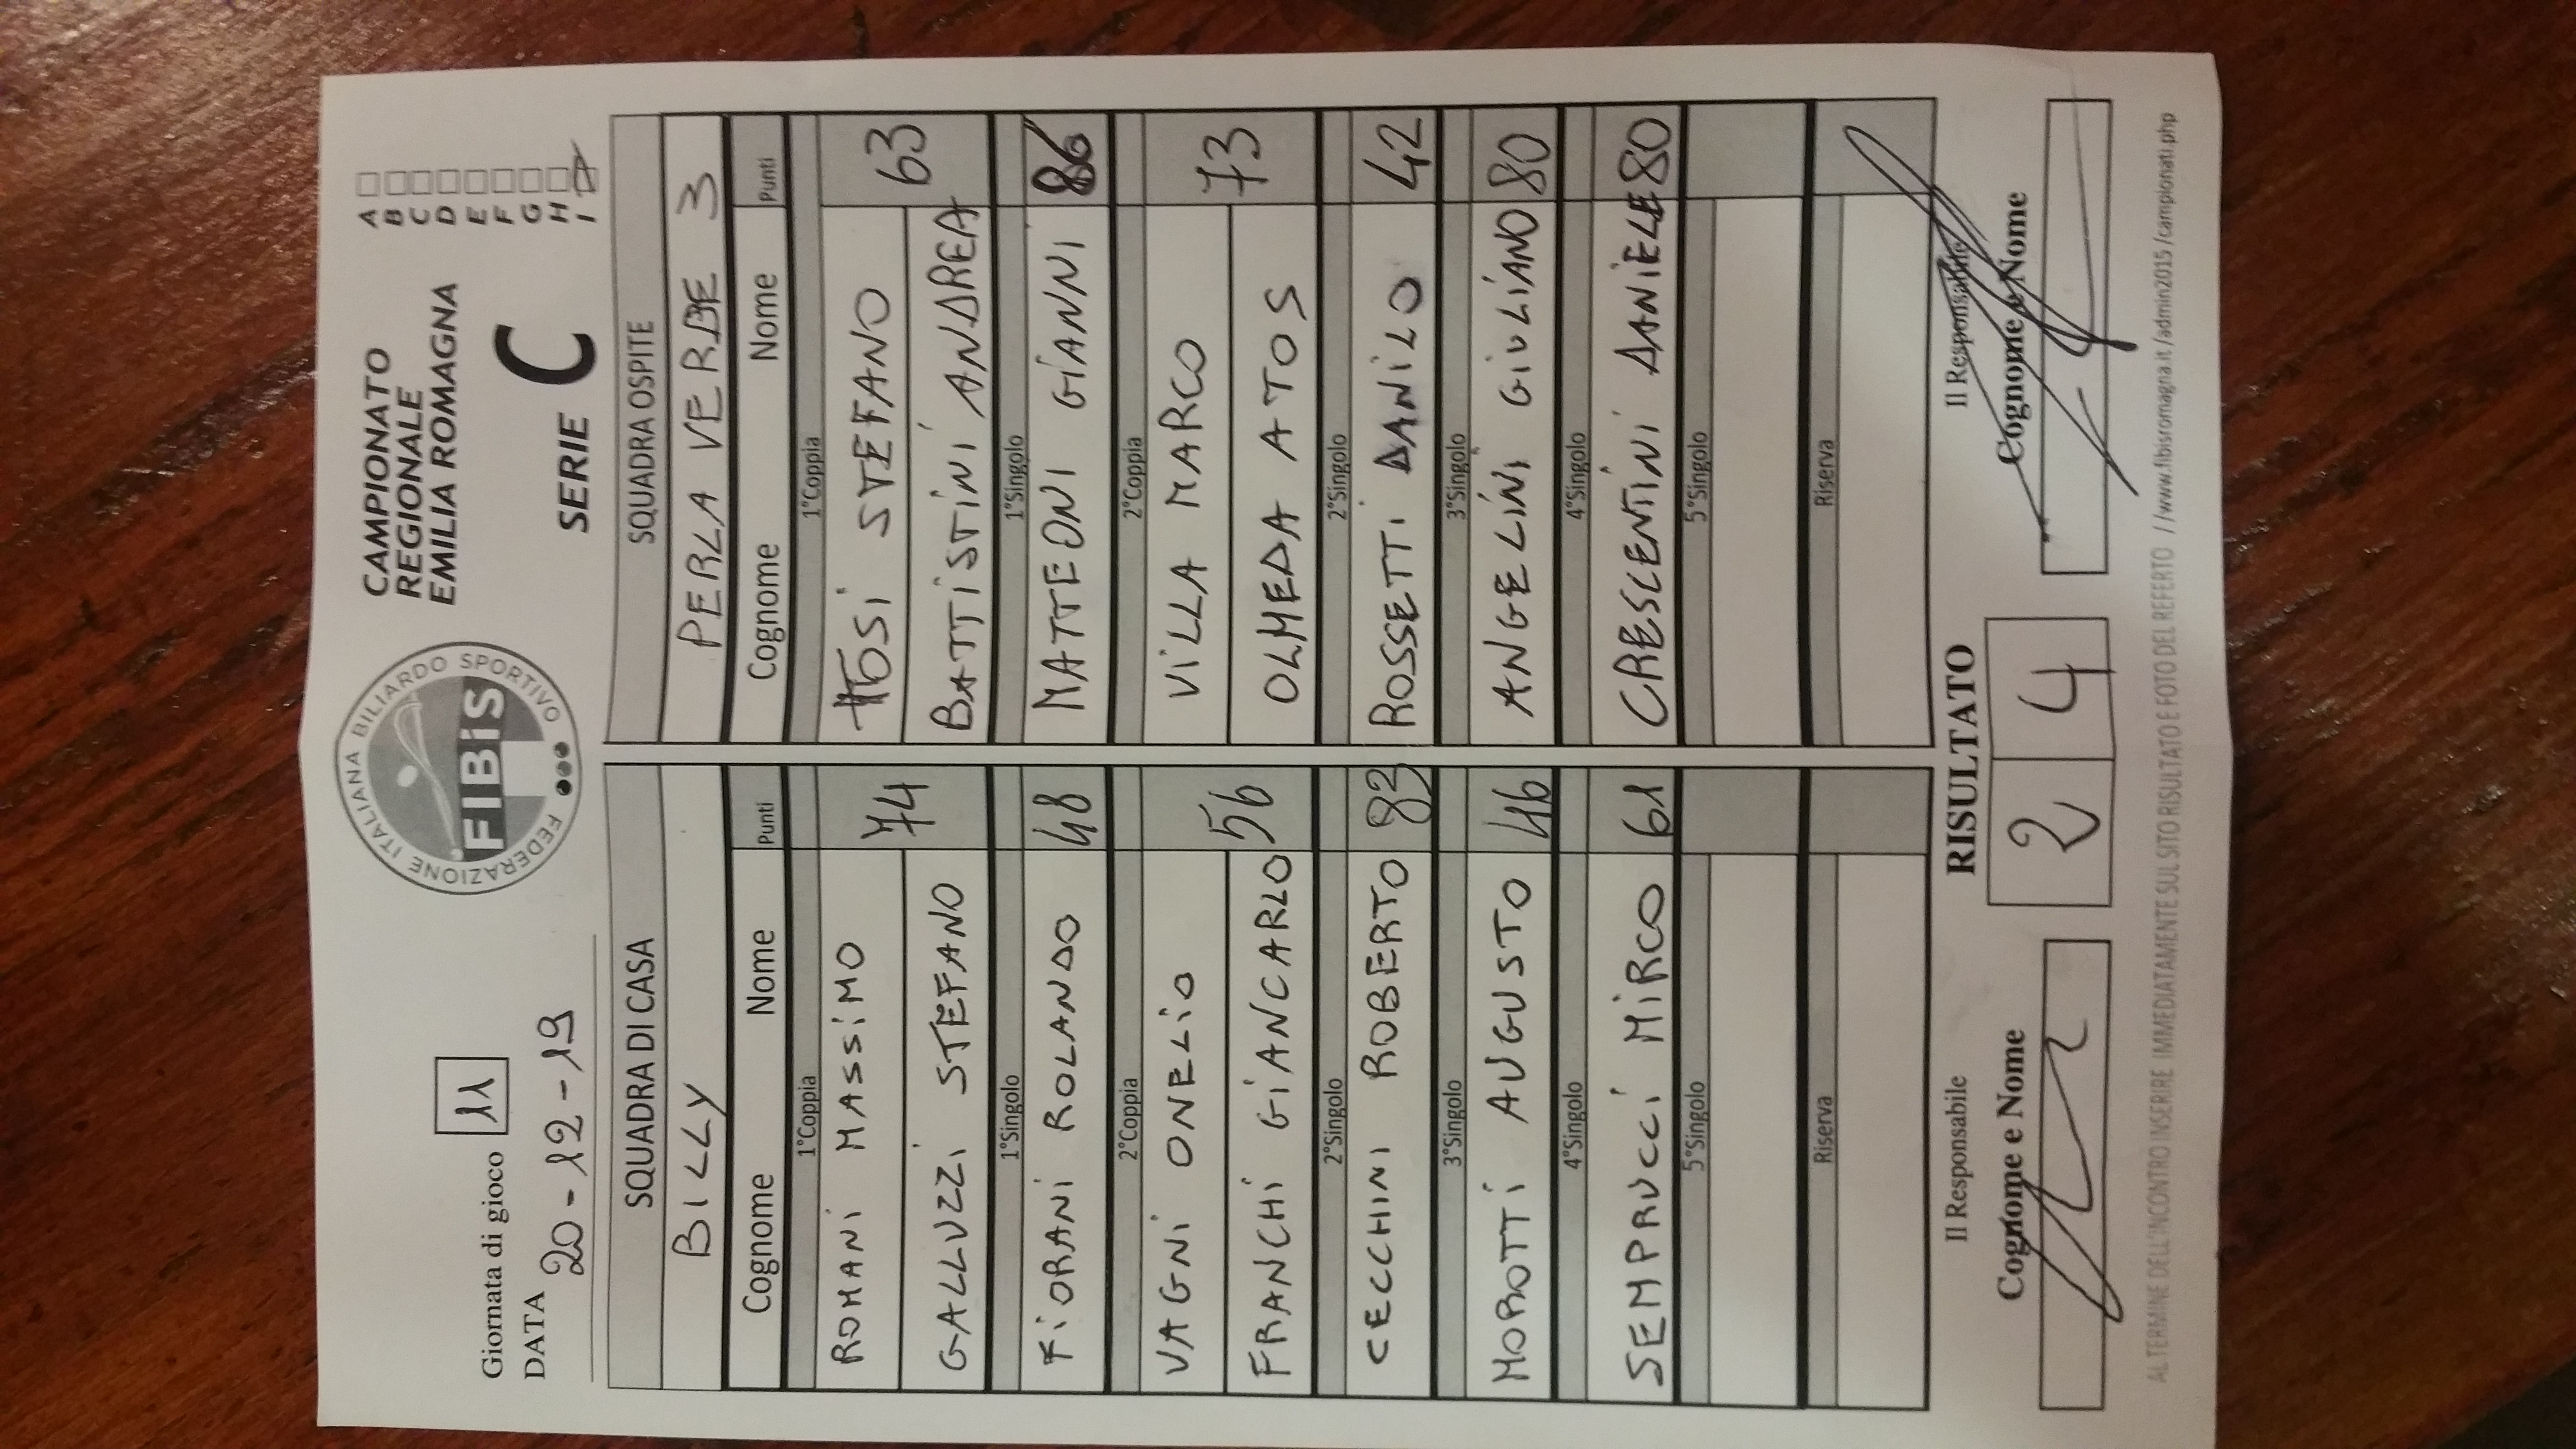 Giornata di gioco 11
DATA 20-12-19
FEDERAZIONE ITALIANA BILIARDO SPORTIVO
FIBiS
CAMPIONATO
REGIONALE
EMILIA ROMAGNA
SERIE C
A
B
C
D
E
F
G
H
I
SQUADRA DI CASA
BILLY
Cognome Nome Punti
1°Coppia
ROMANI MASSIMO 74
GALLUZZI STEFANO
1°Singolo
FIORANI ROLANDO 48
2°Coppia
VAGNI ONELIO 56
FRANCHI GIANCARLO
2°Singolo
CECCHINI ROBERTO 83
3°Singolo
MOROTTI AUGUSTO 46
4°Singolo
SEMPRUCCI MIRCO 61
5°Singolo
Riserva
SQUADRA OSPITE
PERLA VERDE 3
Cognome Nome Punti
1°Coppia
TOSI STEFANO 63
BATTISTINI ANDREA
1°Singolo
MATTEONI GIANNI 86
2°Coppia
VILLA MARCO 73
OLMEDA ATOS
2°Singolo
ROSSETTI DANILO 42
3°Singolo
ANGELINI GIULIANO 80
4°Singolo
CRESCENTINI DANIELE 80
5°Singolo
Riserva
Il Responsabile
Cognome e Nome
RISULTATO
2 4
Il Responsabile
Cognome e Nome
AL TERMINE DELL'INCONTRO INSERIRE IMMEDIATAMENTE SUL SITO RISULTATO E FOTO DEL REFERTO //www.fibisromagna.it/admin2015/campionati.php